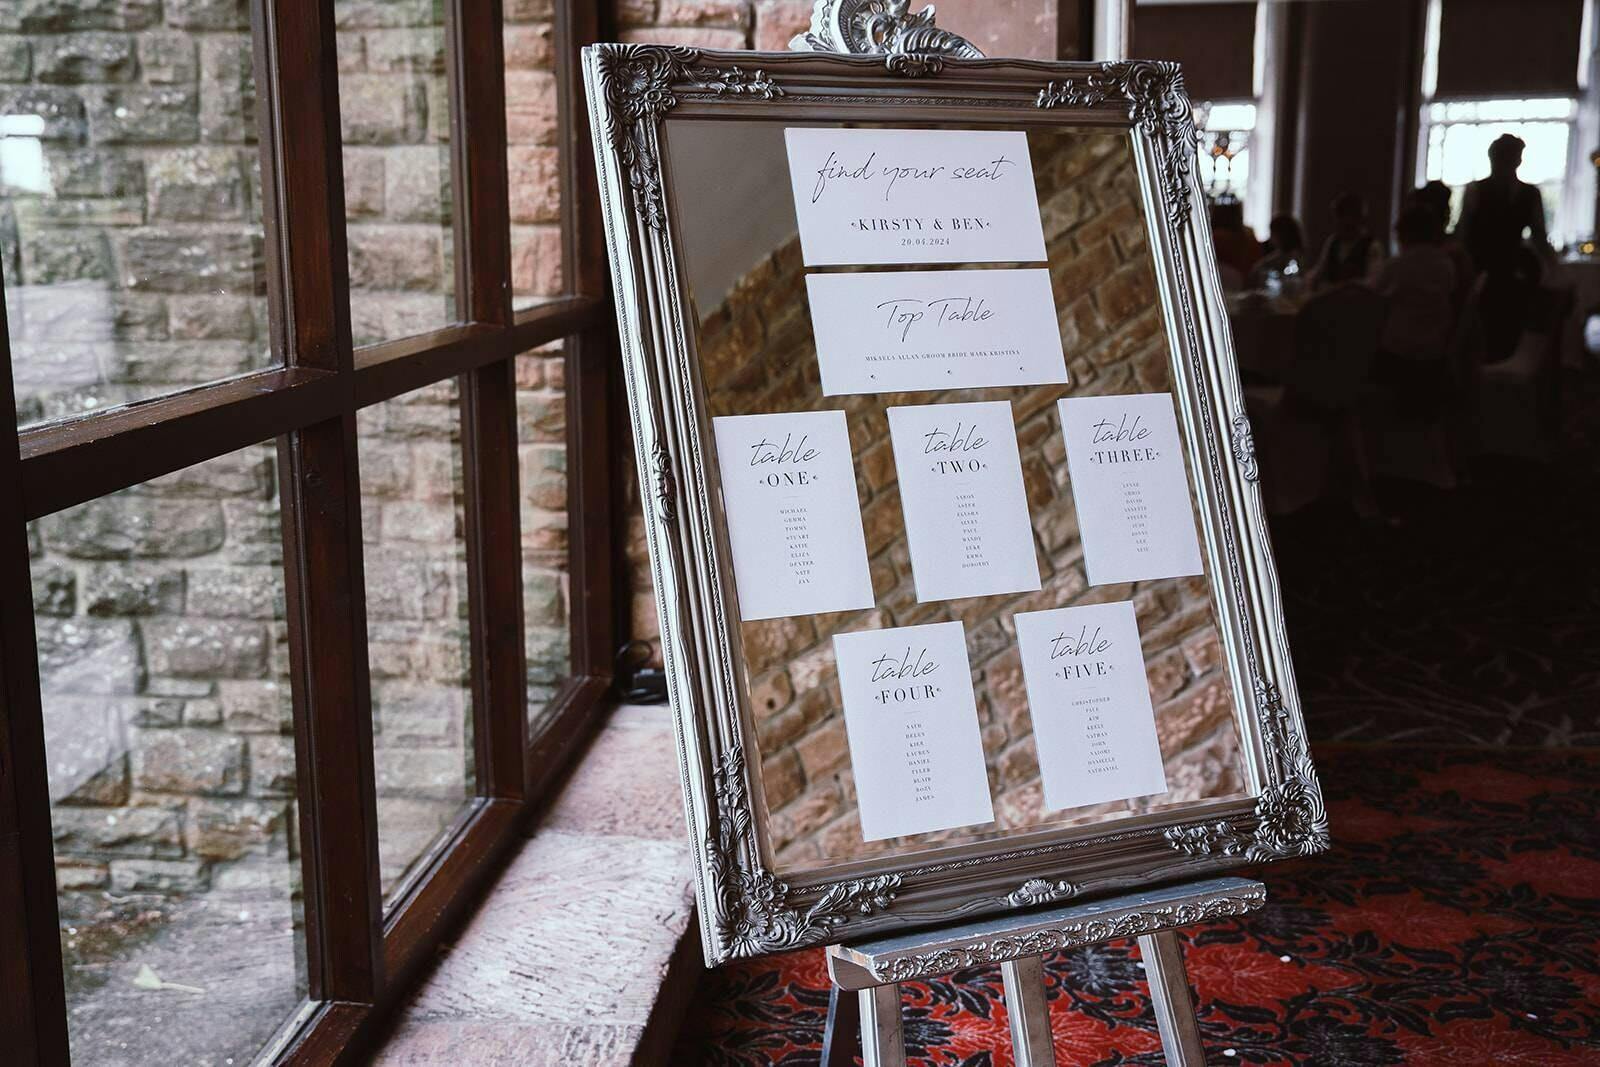 find your seat
KIRSTY & BEN
20.04.2024
Top Table
MIKAELA ALLAN GROOM BRIDE MARK KRISTINA
table
ONE
MICHAEL
GEMMA
TOMMY
STUART
KATIE
ELIZA
DEXTER
NATE
JAN
table
TWO
AARON
ASTER
PAUL
WENDY
LUKE
EMMA
DOROTHY
table
THREE
LYNNE
CHRIS
DAVID
ANNETTE
STEVEN
JUDI
LEE
table
FOUR
NATH
HELEN
KIER
LAUREN
DANIEL
TYLER
BLAIR
ROZY
JAMES
table
FIVE
CHRISTOPHER
PAUL
KIM
KEELY
NATHAN
JOHN
NAOMI
DANIELLE
NATHANIEL